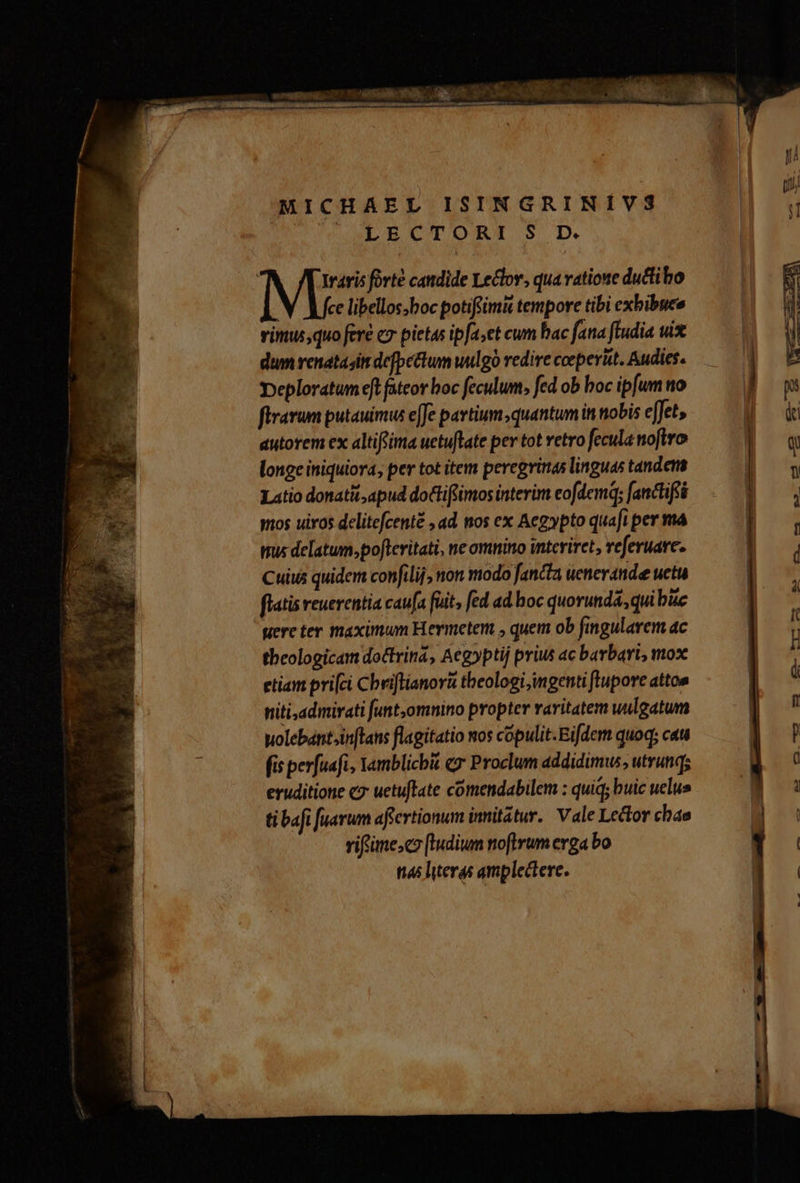 MICHAEL ISINGRINIVS
LECTORI S D.
MIraris fortè candide Lector, qua ratione ducti ho
ſce libellos, hoc potiſsimũ tempore tibi exhibue⸗
rimus, quo ferè & pietas ipſa, et cum hac ſana ſtudia uix
dum renata, in deſpectum uulgò redire cœperũt. Audies.
Deploratum eſt fateor hoc ſeculum, ſed ob hoc ipſum no
ſtrarum putauimus eſſe partium, quantum in nobis eſſet,
autorem ex altiſsima uetuſtate per tot retro ſecula noſtro
longe iniquiora, per tot item peregrinas linguas tandem
Latio donatũ, apud doctiſsimos interim eoſdemq́; ſanctiſsi
mos uiros deliteſcentẽ, ad nos ex Aegypto quaſi per ma
nus delatum, poſteritati, ne omnino interiret, reſeruare.
Cuius quidem conſilij, non modo ſancta uenerandæ uetu
ſtatis reuerentia cauſa fuit, ſed ad hoc quorundã, qui hũc
uere ter maximum Hermetem, quem ob ſingularem ac
theologicam doctrinã, Aegyptij prius ac barbari, mox
etiam priſci Chriſtianorũ theologi, ingenti ſtupore atto⸗
niti, admirati ſunt, omnino propter raritatem uulgatum
uolebant, inſtans flagitatio nos cõpulit. Eiſdem quoq; cau
ſis perſuaſi, Iamblichũ & Proclum addidimus, utrunq;
eruditione & uetuſtate cõmendabilem: quiq́; huic uelu⸗
ti baſi ſuarum aſsertionum innitãtur. Vale Lector cha⸗
riſsime, & ſtudium noſtrum erga bo
nas literas amplectere.